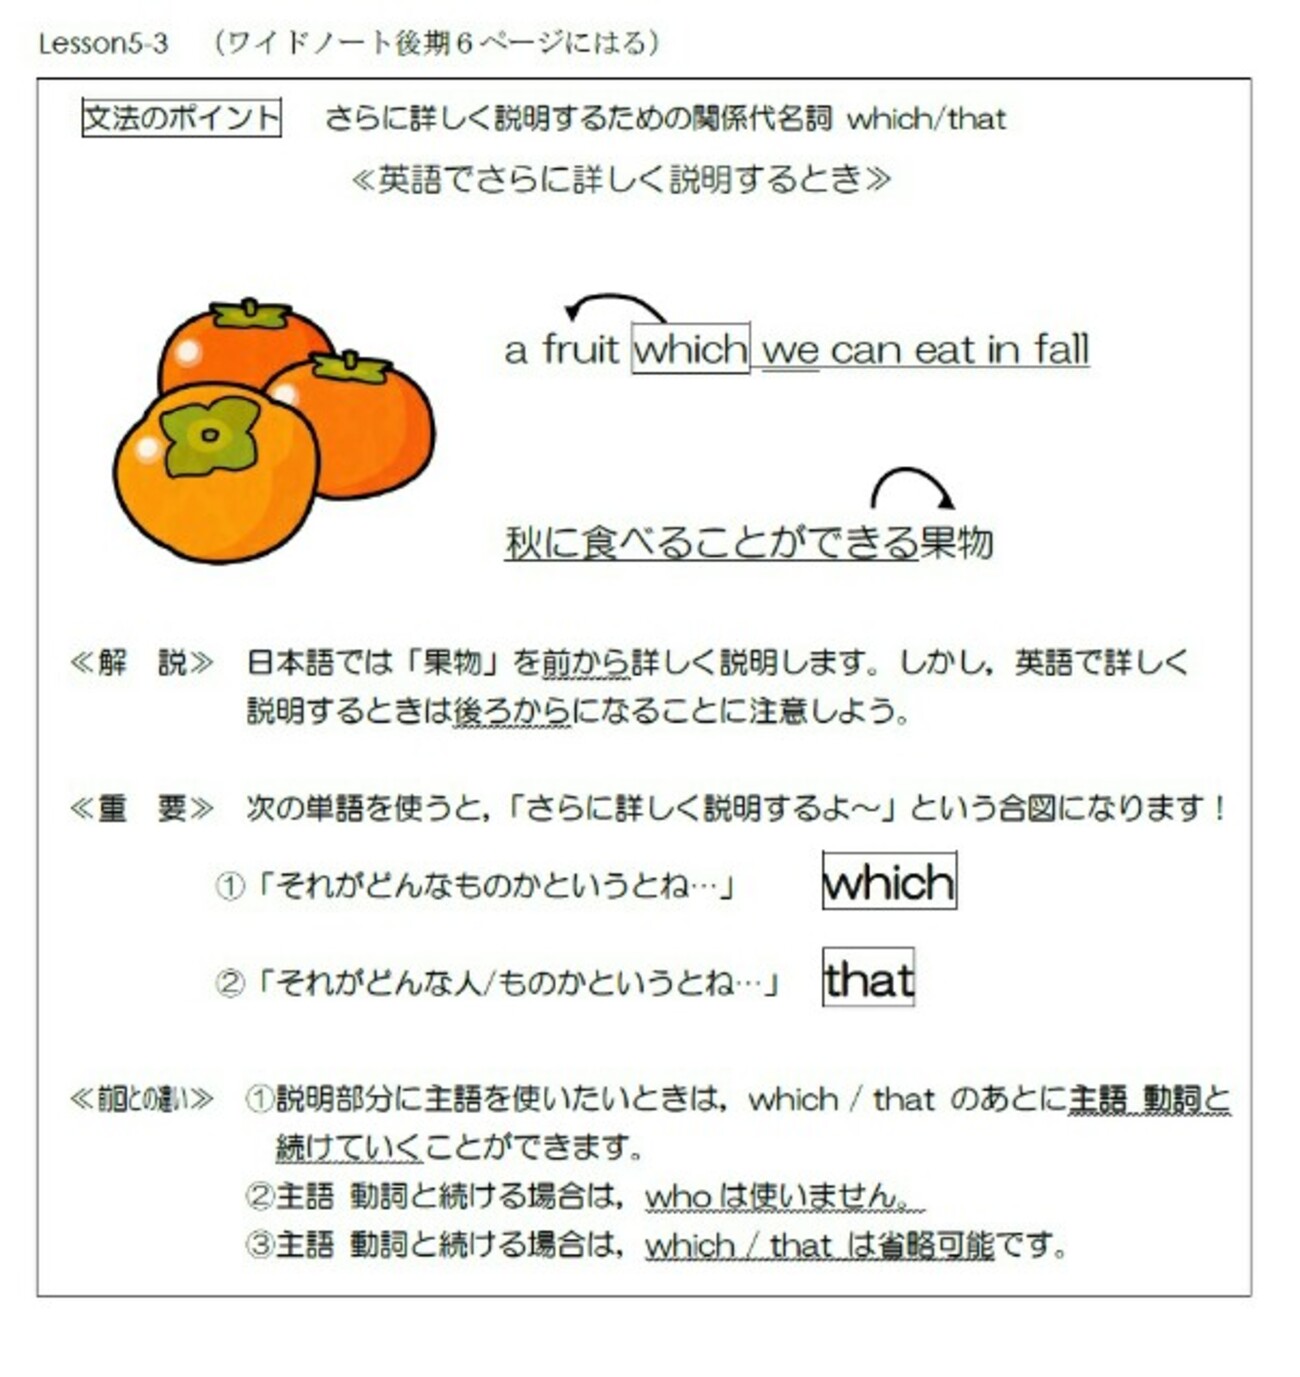 Lesson5-3 （ワイドノート後期６ページにはる）
文法のポイント さらに詳しく説明するための関係代名詞 which/that
≪英語でさらに詳しく説明するとき≫
a fruit which we can eat in fall
秋に食べることができる果物
≪解　説≫ 日本語では「果物」を前から詳しく説明します。しかし，英語で詳しく
説明するときは後ろからになることに注意しよう。
≪重　要≫ 次の単語を使うと，「さらに詳しく説明するよ～」という合図になります！
①「それがどんなものかというとね…」 which
②「それがどんな人/ものかというとね…」 that
≪前回との違い≫ ①説明部分に主語を使いたいときは，which / that のあとに主語 動詞と
続けていくことができます。
②主語 動詞と続ける場合は，who は使いません。
③主語 動詞と続ける場合は，which / that は省略可能です。